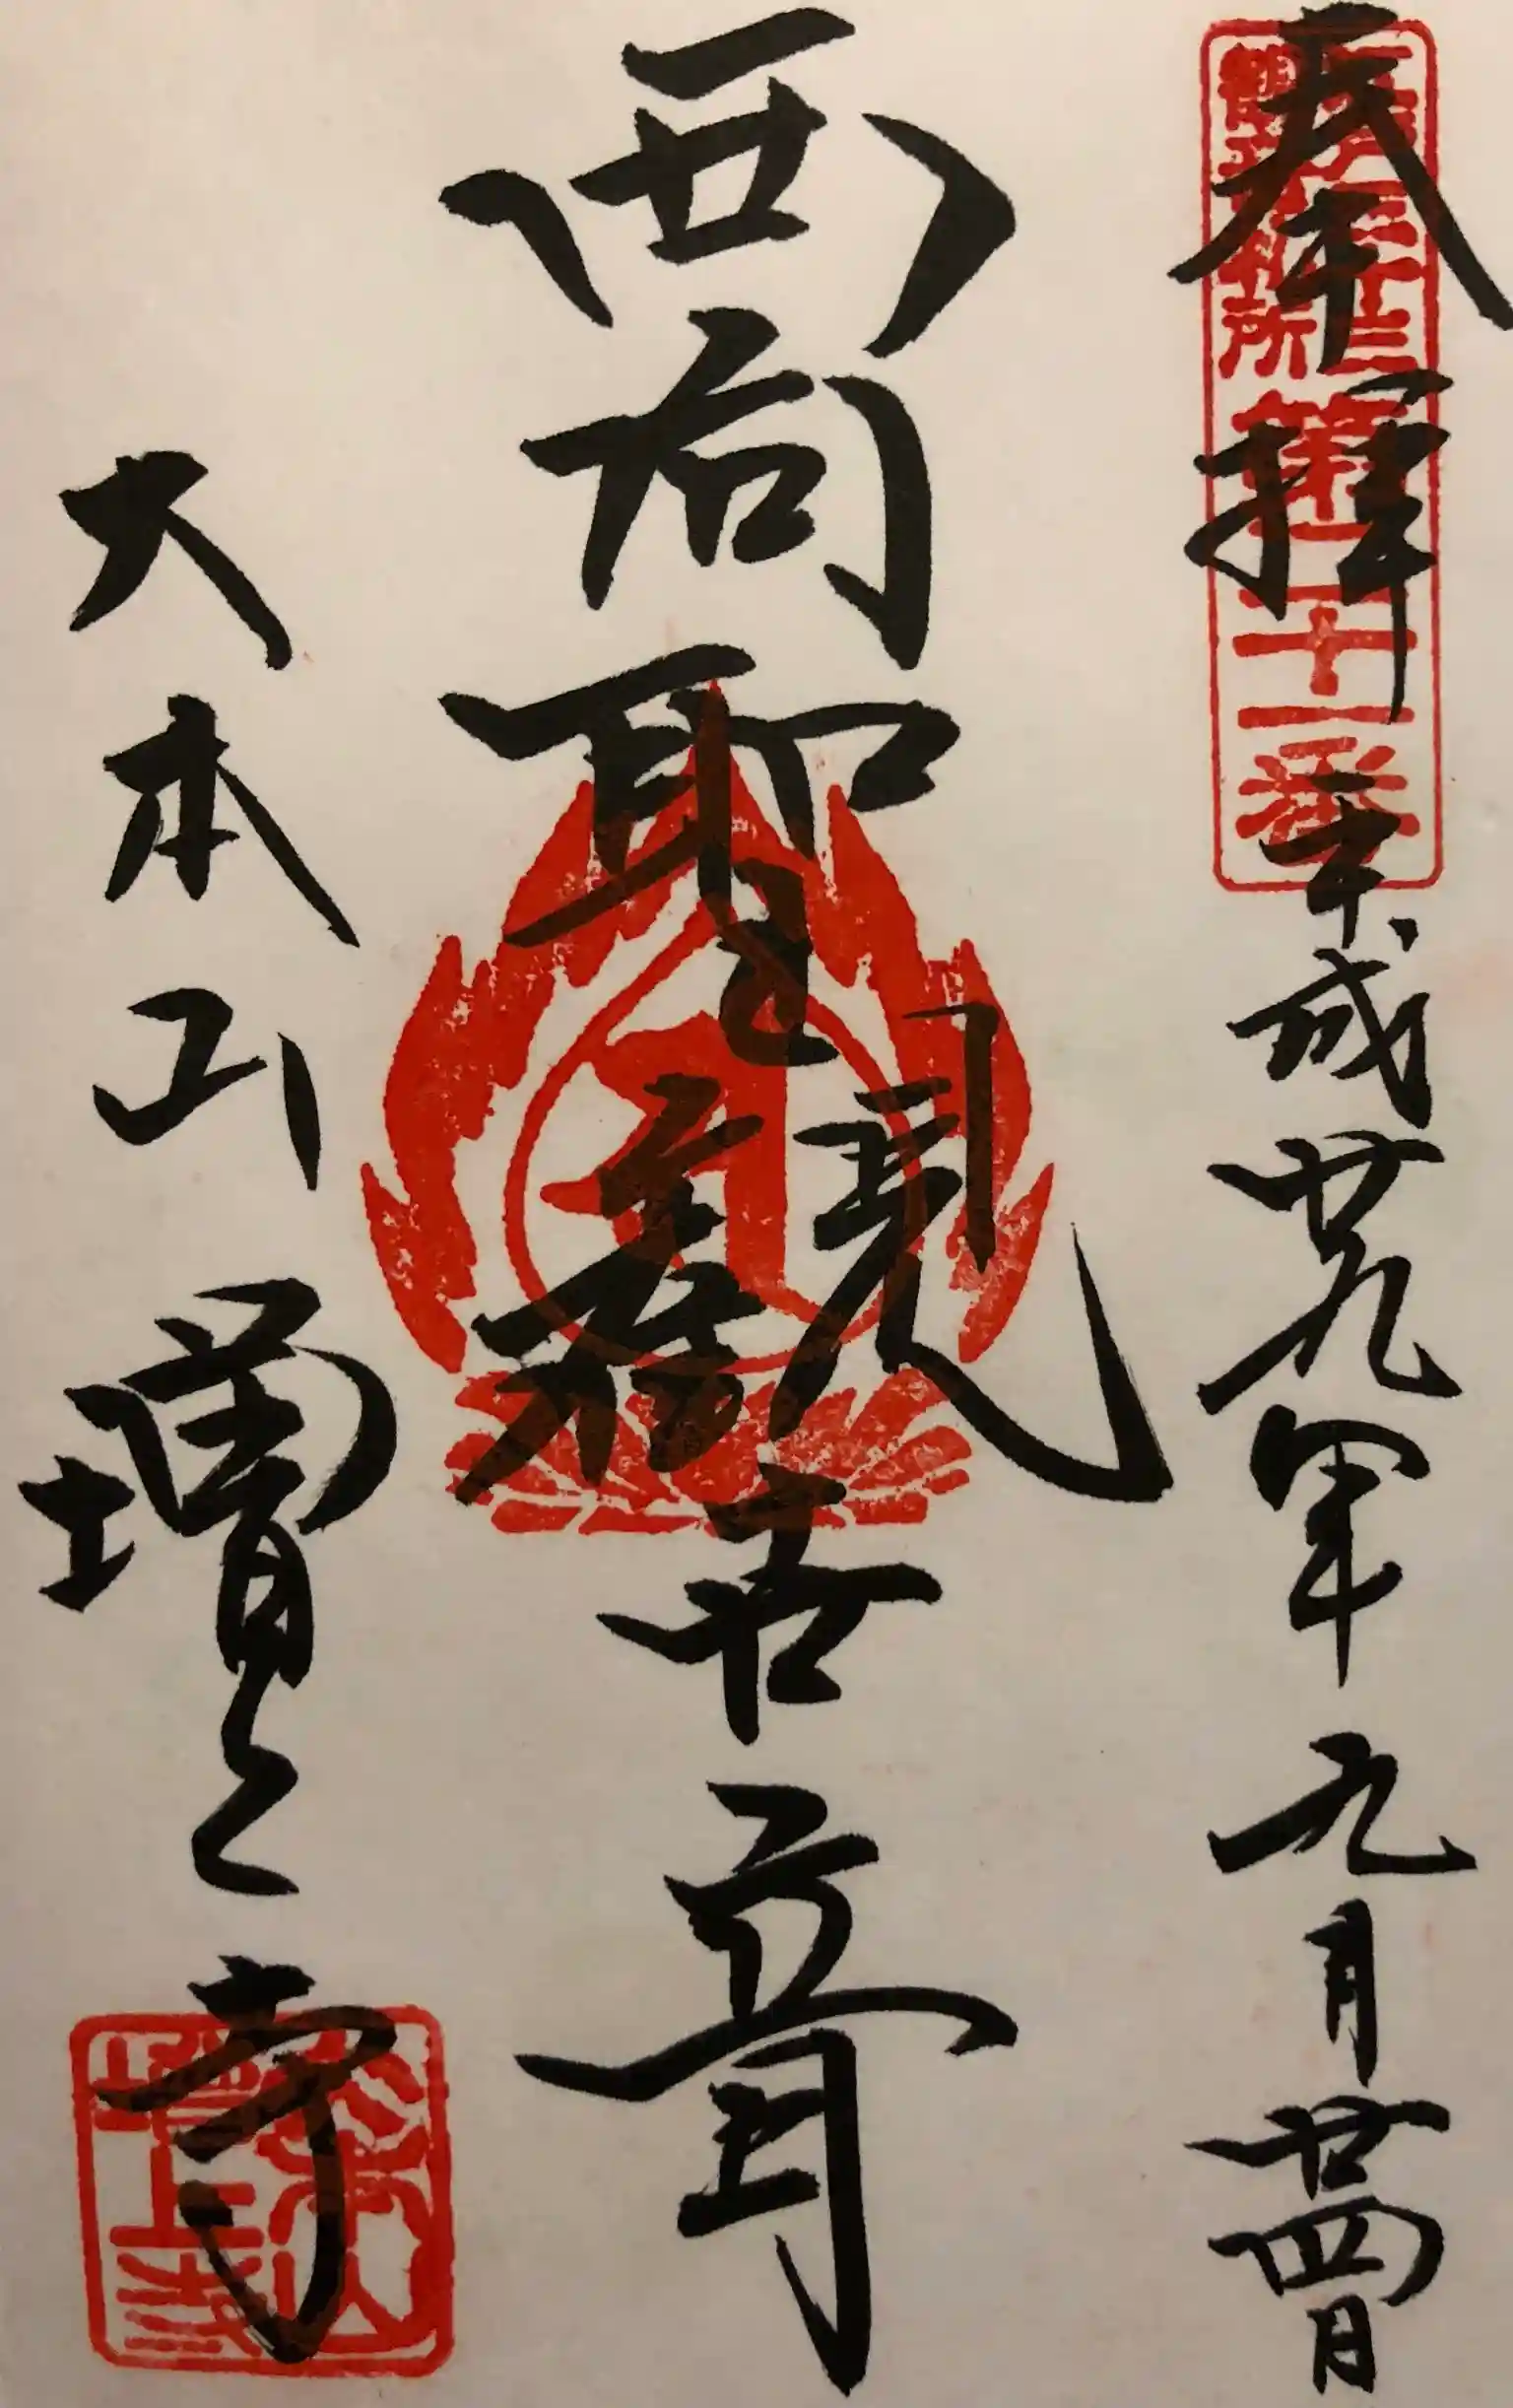 奉拝 平成廿九年九月廿四日
江戸三十三
観音札所
第二十一番
西向聖観世音
大本山 増上寺
大本山
増上寺